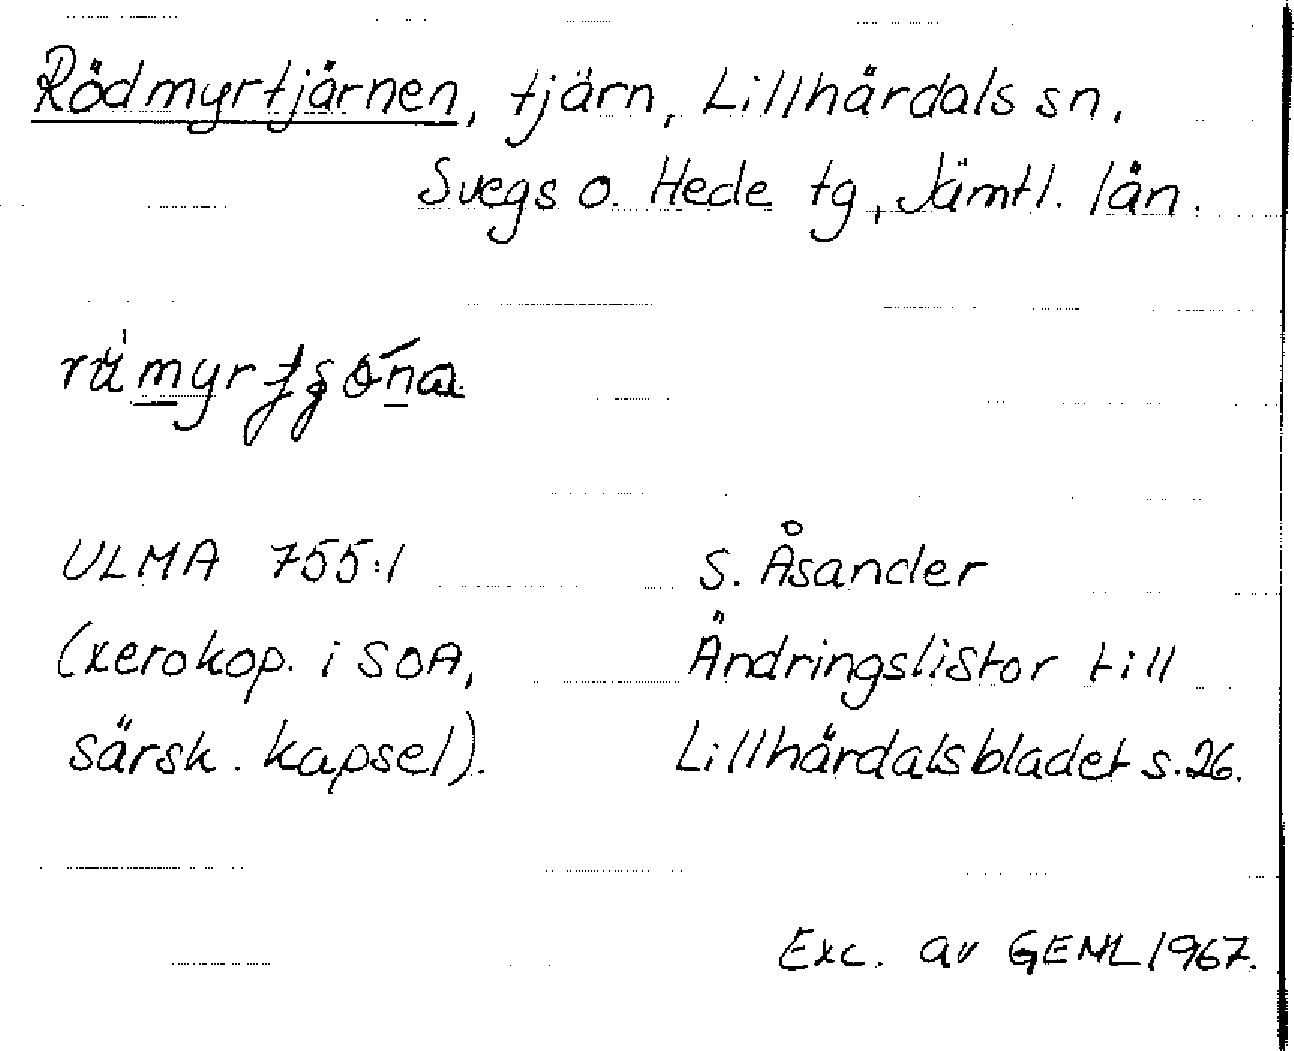 Rödmyrtjärnen, tjärn, Lillhärdals sn,
Svegs o. Hede tg, Jämtl. län.
ULMA 755:1
(xerokop. i SOA,
särsk. kapsel).
S. Åsander
Ändringslistor till
Lillhärdalsbladet s. 26.
Exc. av GEML 1967.